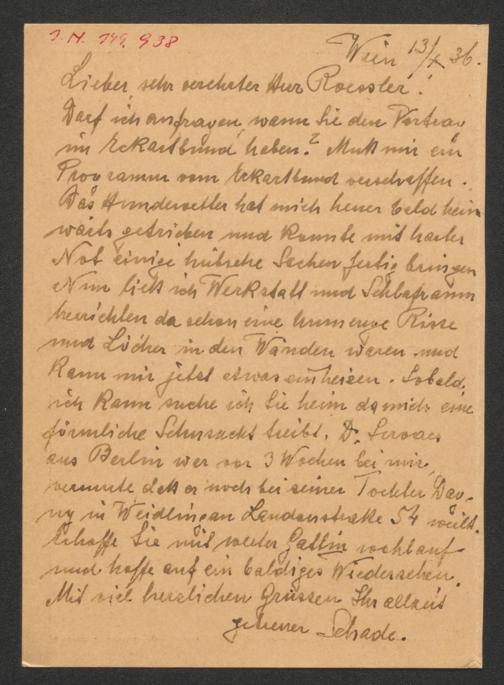 I.N. 149.938
Wien 13/X 36.
Lieber, sehr verehrter Herr Roessler!
Darf ich anfragen, wann Sie den Vortrag
im Eckartbund haben? Muß mir ein
Programm vom Eckartbund verschaffen.
Das Hundewetter hat mich heuer bald heim
wärts getrieben und konnte mit harter
Not einige hübsche Sachen fertig bringen
Nun ließ ich Werkstatt und Schlafraum
herrichten da schon eine Unmenge Risse
und Löcher in den Wänden waren und
kann mir jetzt etwas einheizen. Sobald
ich kann suche ich Sie heim da mich eine
förmliche Sehnsucht treibt. Dr. Servaes
aus Berlin war vor 3 Wochen bei mir,
vermute daß er noch bei seiner Tochter Dag-
ny in Weidlingau Landerstraße 54 weilt.
Ich hoffe Sie mit werter Gattin wohlauf
und hoffe auf ein baldiges Wiedersehen.
Mit viel herzlichen Grüssen Ihr allzeit
getreuer Schade.